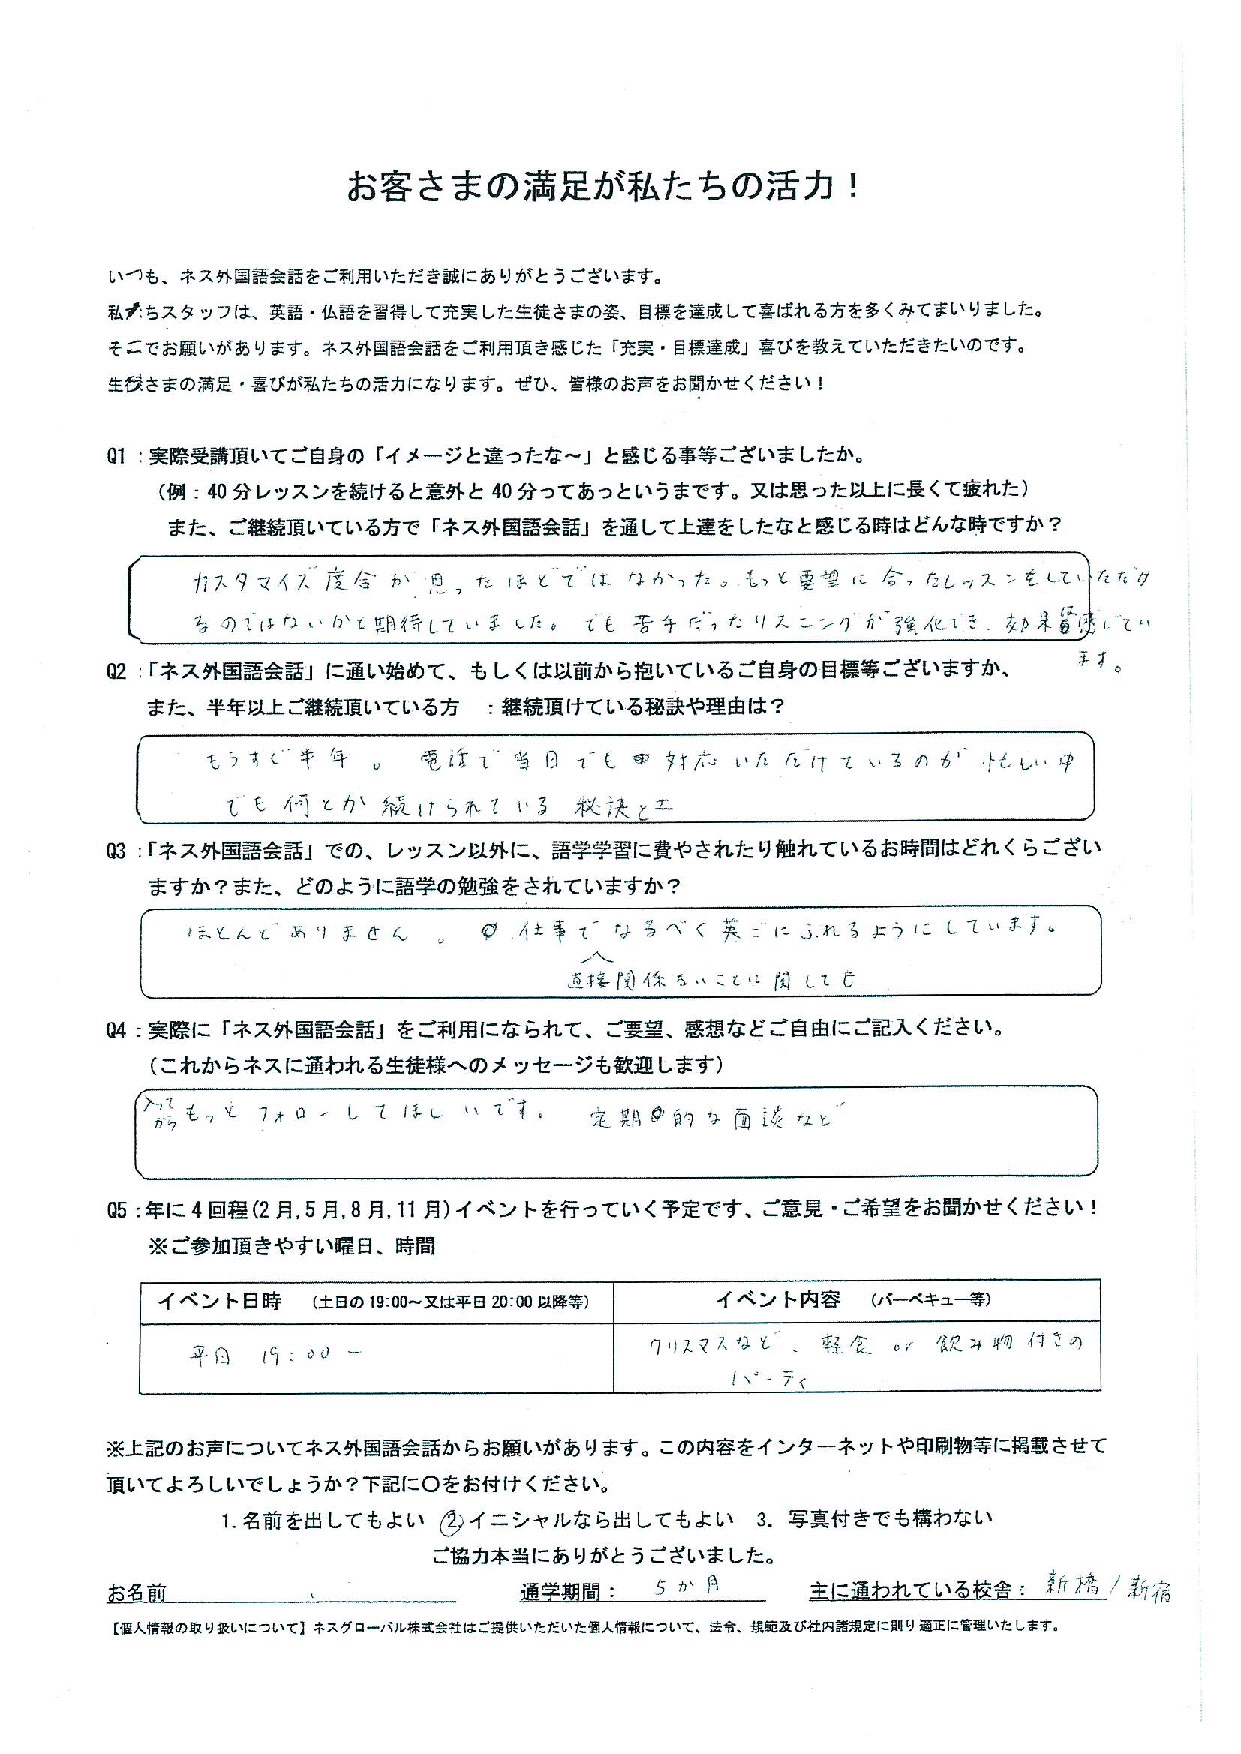 お客さまの満足が私たちの活力！
いつも、ネス外国語会話をご利用いただき誠にありがとうございます。
私たちスタッフは、英語・仏語を習得して充実した生徒さまの姿、目標を達成して喜ばれる方を多くみてまいりました。
そこでお願いがあります。ネス外国語会話をご利用頂き感じた「充実・目標達成」喜びを教えていただきたいのです。
生徒さまの満足・喜びが私たちの活力になります。ぜひ、皆様のお声をお聞かせください！
Q1：実際受講頂いてご自身の「イメージと違ったな～」と感じる事等ございましたか。
（例：40分レッスンを続けると意外と40分ってあっというまです。又は思った以上に長くて疲れた）
また、ご継続頂いている方で「ネス外国語会話」を通して上達をしたなと感じる時はどんな時ですか？
カスタマイズ度合が思ったほどではなかった。もっと要望に合ったレッスンをしていただけ
るのではないかと期待していました。でも苦手だったリスニングが強化でき、効果は実感してい
ます。
Q2：「ネス外国語会話」に通い始めて、もしくは以前から抱いているご自身の目標等ございますか、
また、半年以上ご継続頂いている方　：継続頂けている秘訣や理由は？
もうすぐ半年。電話で当日でも対応いただけているのが忙しい中
でも何とか続けられている秘訣
Q3：「ネス外国語会話」での、レッスン以外に、語学学習に費やされたり触れているお時間はどれくらござい
ますか？また、どのように語学の勉強をされていますか？
ほとんどありません。仕事でなるべく英ごにふれるようにしています。
直接関係ないことに関しても
Q4：実際に「ネス外国語会話」をご利用になられて、ご要望、感想などご自由にご記入ください。
（これからネスに通われる生徒様へのメッセージも歓迎します）
入ってからもっとフォローしてほしいです。定期的な面談など
Q5：年に4回程(2月,5月,8月,11月)イベントを行っていく予定です、ご意見・ご希望をお聞かせください！
※ご参加頂きやすい曜日、時間
イベント日時　（土日の19:00～又は平日20:00以降等）　イベント内容　（バーベキュー等）
平日　19:00－　クリスマスなど、軽食 or 飲み物付きの
パーティ
※上記のお声についてネス外国語会話からお願いがあります。この内容をインターネットや印刷物等に掲載させて
頂いてよろしいでしょうか？下記に〇をお付けください。
1.名前を出してもよい　②イニシャルなら出してもよい　3．写真付きでも構わない
ご協力本当にありがとうございました。
お名前　通学期間：5か月　主に通われている校舎：新橋/新宿
【個人情報の取り扱いについて】ネスグローバル株式会社はご提供いただいた個人情報について、法令、規範及び社内諸規定に則り適正に管理いたします。